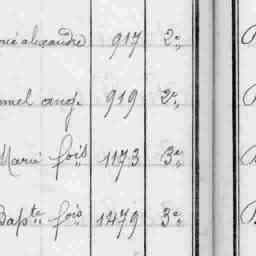 alexandre 917 2e
ang. 919 2e
Marie fois 1173 3e
Bapte fois 1479 3e